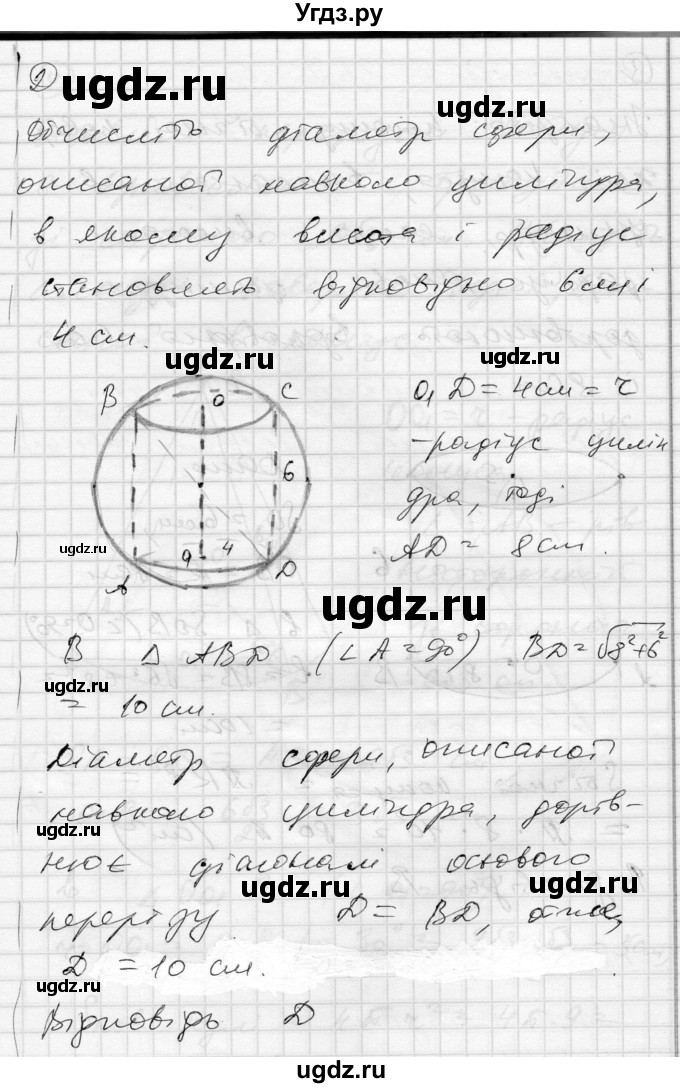 Угдз.ру
2
ugdz.ru
ugdz.ru
Обчисліть діаметр сфери,
описаної навколо циліндра,
в якому висота і радіус
становлять відповідно 6 см і
4 см.
ugdz.ru
ugdz.ru
B O C
6
O₁ 4
A D
O₁D = 4 см = r
- радіус цилін
дра, тоді
AD = 8 см.
ugdz.ru
ugdz.ru
ugdz.ru
В △ ABD (∠A = 90°) BD = √8²+6²
ugdz.ru
= 10 см.
Діаметр сфери, описаної
навколо циліндра, дорів-
ugdz.ru
нює діагоналі осьового
ugdz.ru
ugdz.ru
перерізу D = BD, отже,
D = 10 см.
ugdz.ru
Відповідь D
ugdz.ru